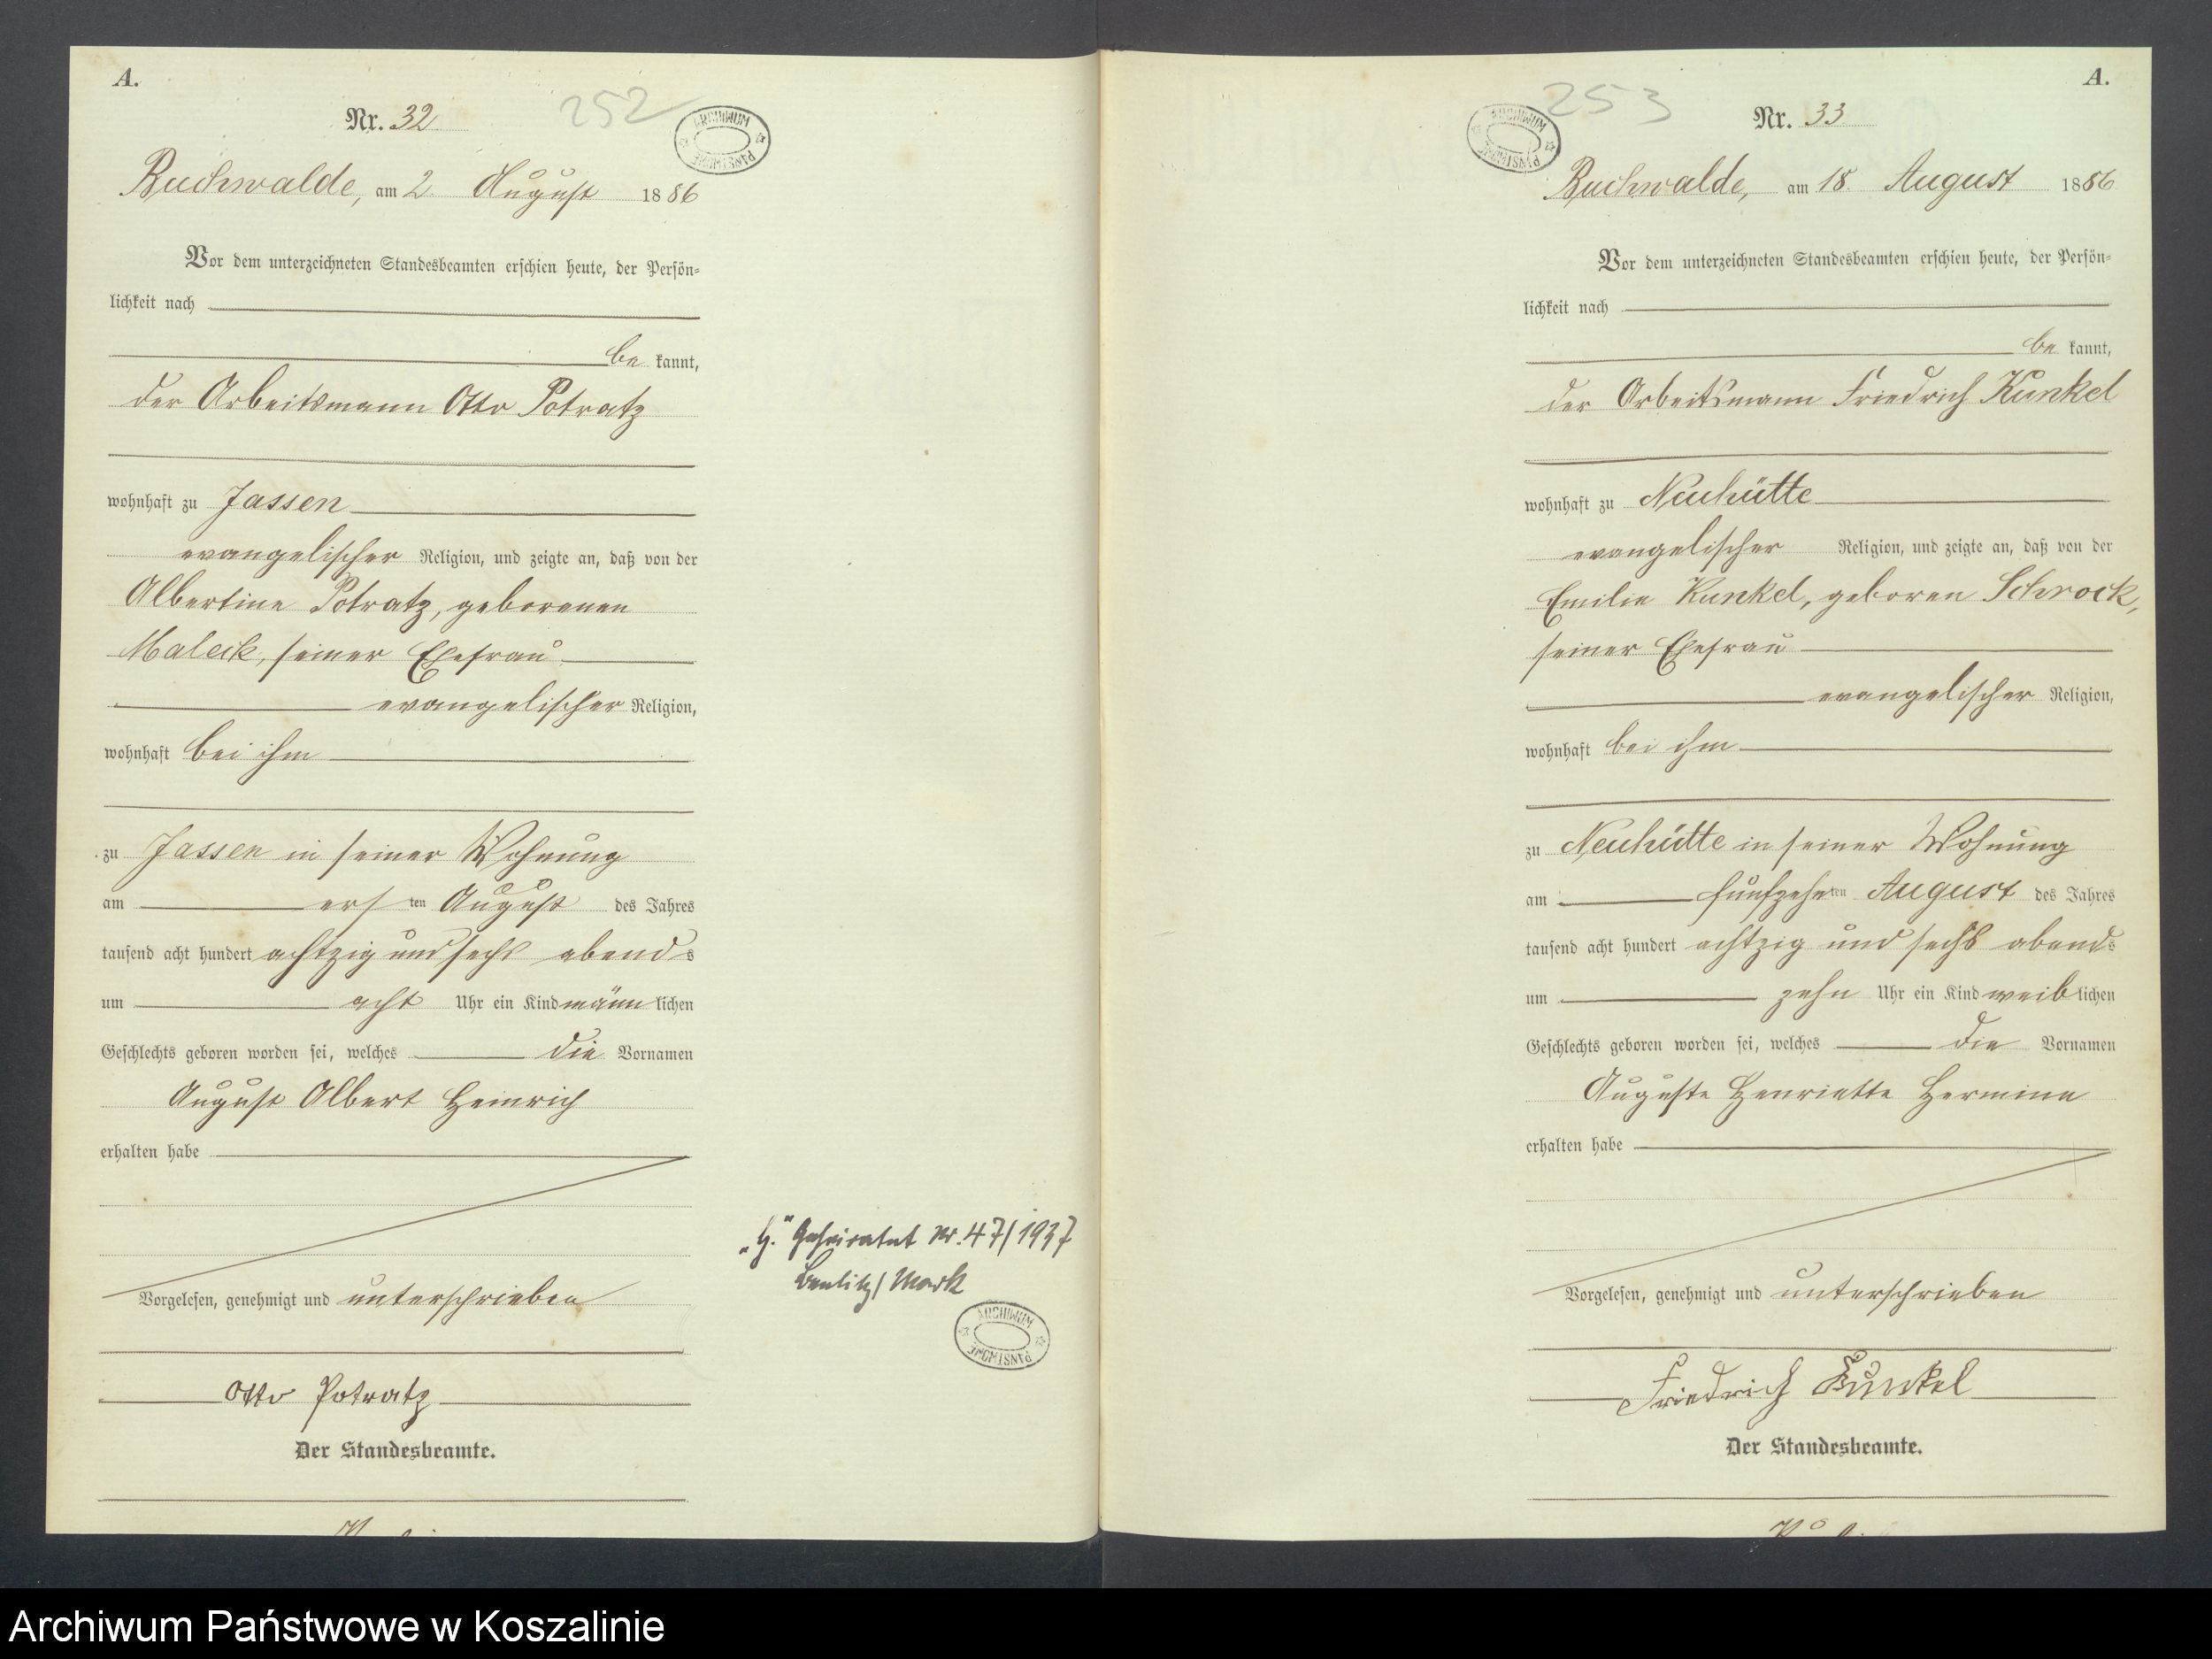 A.
Nr. 32
252
ARCHIWUM PAŃSTWOWE
Buchwalde, am 2 August 1886
Vor dem unterzeichneten Standesbeamten erschien heute, der Persön-
lichkeit nach
be kannt,
der Arbeitsmann Otto Potratz
wohnhaft zu Jassen
evangelischer Religion, und zeigte an, daß von der
Albertine Potratz, geborenen
Maleck, seiner Ehefrau
evangelischer Religion,
wohnhaft bei ihm
zu Jassen in seiner Wohnung
am ers ten August des Jahres
tausend acht hundert achtzig und sechs abends
um acht Uhr ein Kind männ lichen
Geschlechts geboren worden sei, welches die Vornamen
August Albert Heinrich
erhalten habe
Vorgelesen, genehmigt und unterschrieben
Otto Potratz
Der Standesbeamte.
„H." Geheiratet Nr. 47/1937
/ Mark
ARCHIWUM PAŃSTWOWE
A.
Nr. 33
253
ARCHIWUM PAŃSTWOWE
Buchwalde, am 18. August 1886
Vor dem unterzeichneten Standesbeamten erschien heute, der Persön-
lichkeit nach
be kannt,
der Arbeitsmann Friedrich Kunkel
wohnhaft zu Neuhütte
evangelischer Religion, und zeigte an, daß von der
Emilie Kunkel, geboren Schrock,
seiner Ehefrau
evangelischer Religion,
wohnhaft bei ihm
zu Neuhütte in seiner Wohnung
am fünfzehnten August des Jahres
tausend acht hundert achtzig und sechs abends
um zehn Uhr ein Kind weib lichen
Geschlechts geboren worden sei, welches die Vornamen
Auguste Henriette Hermine
erhalten habe
Vorgelesen, genehmigt und unterschrieben
Friedrich Kunkel
Der Standesbeamte.
Archiwum Państwowe w Koszalinie